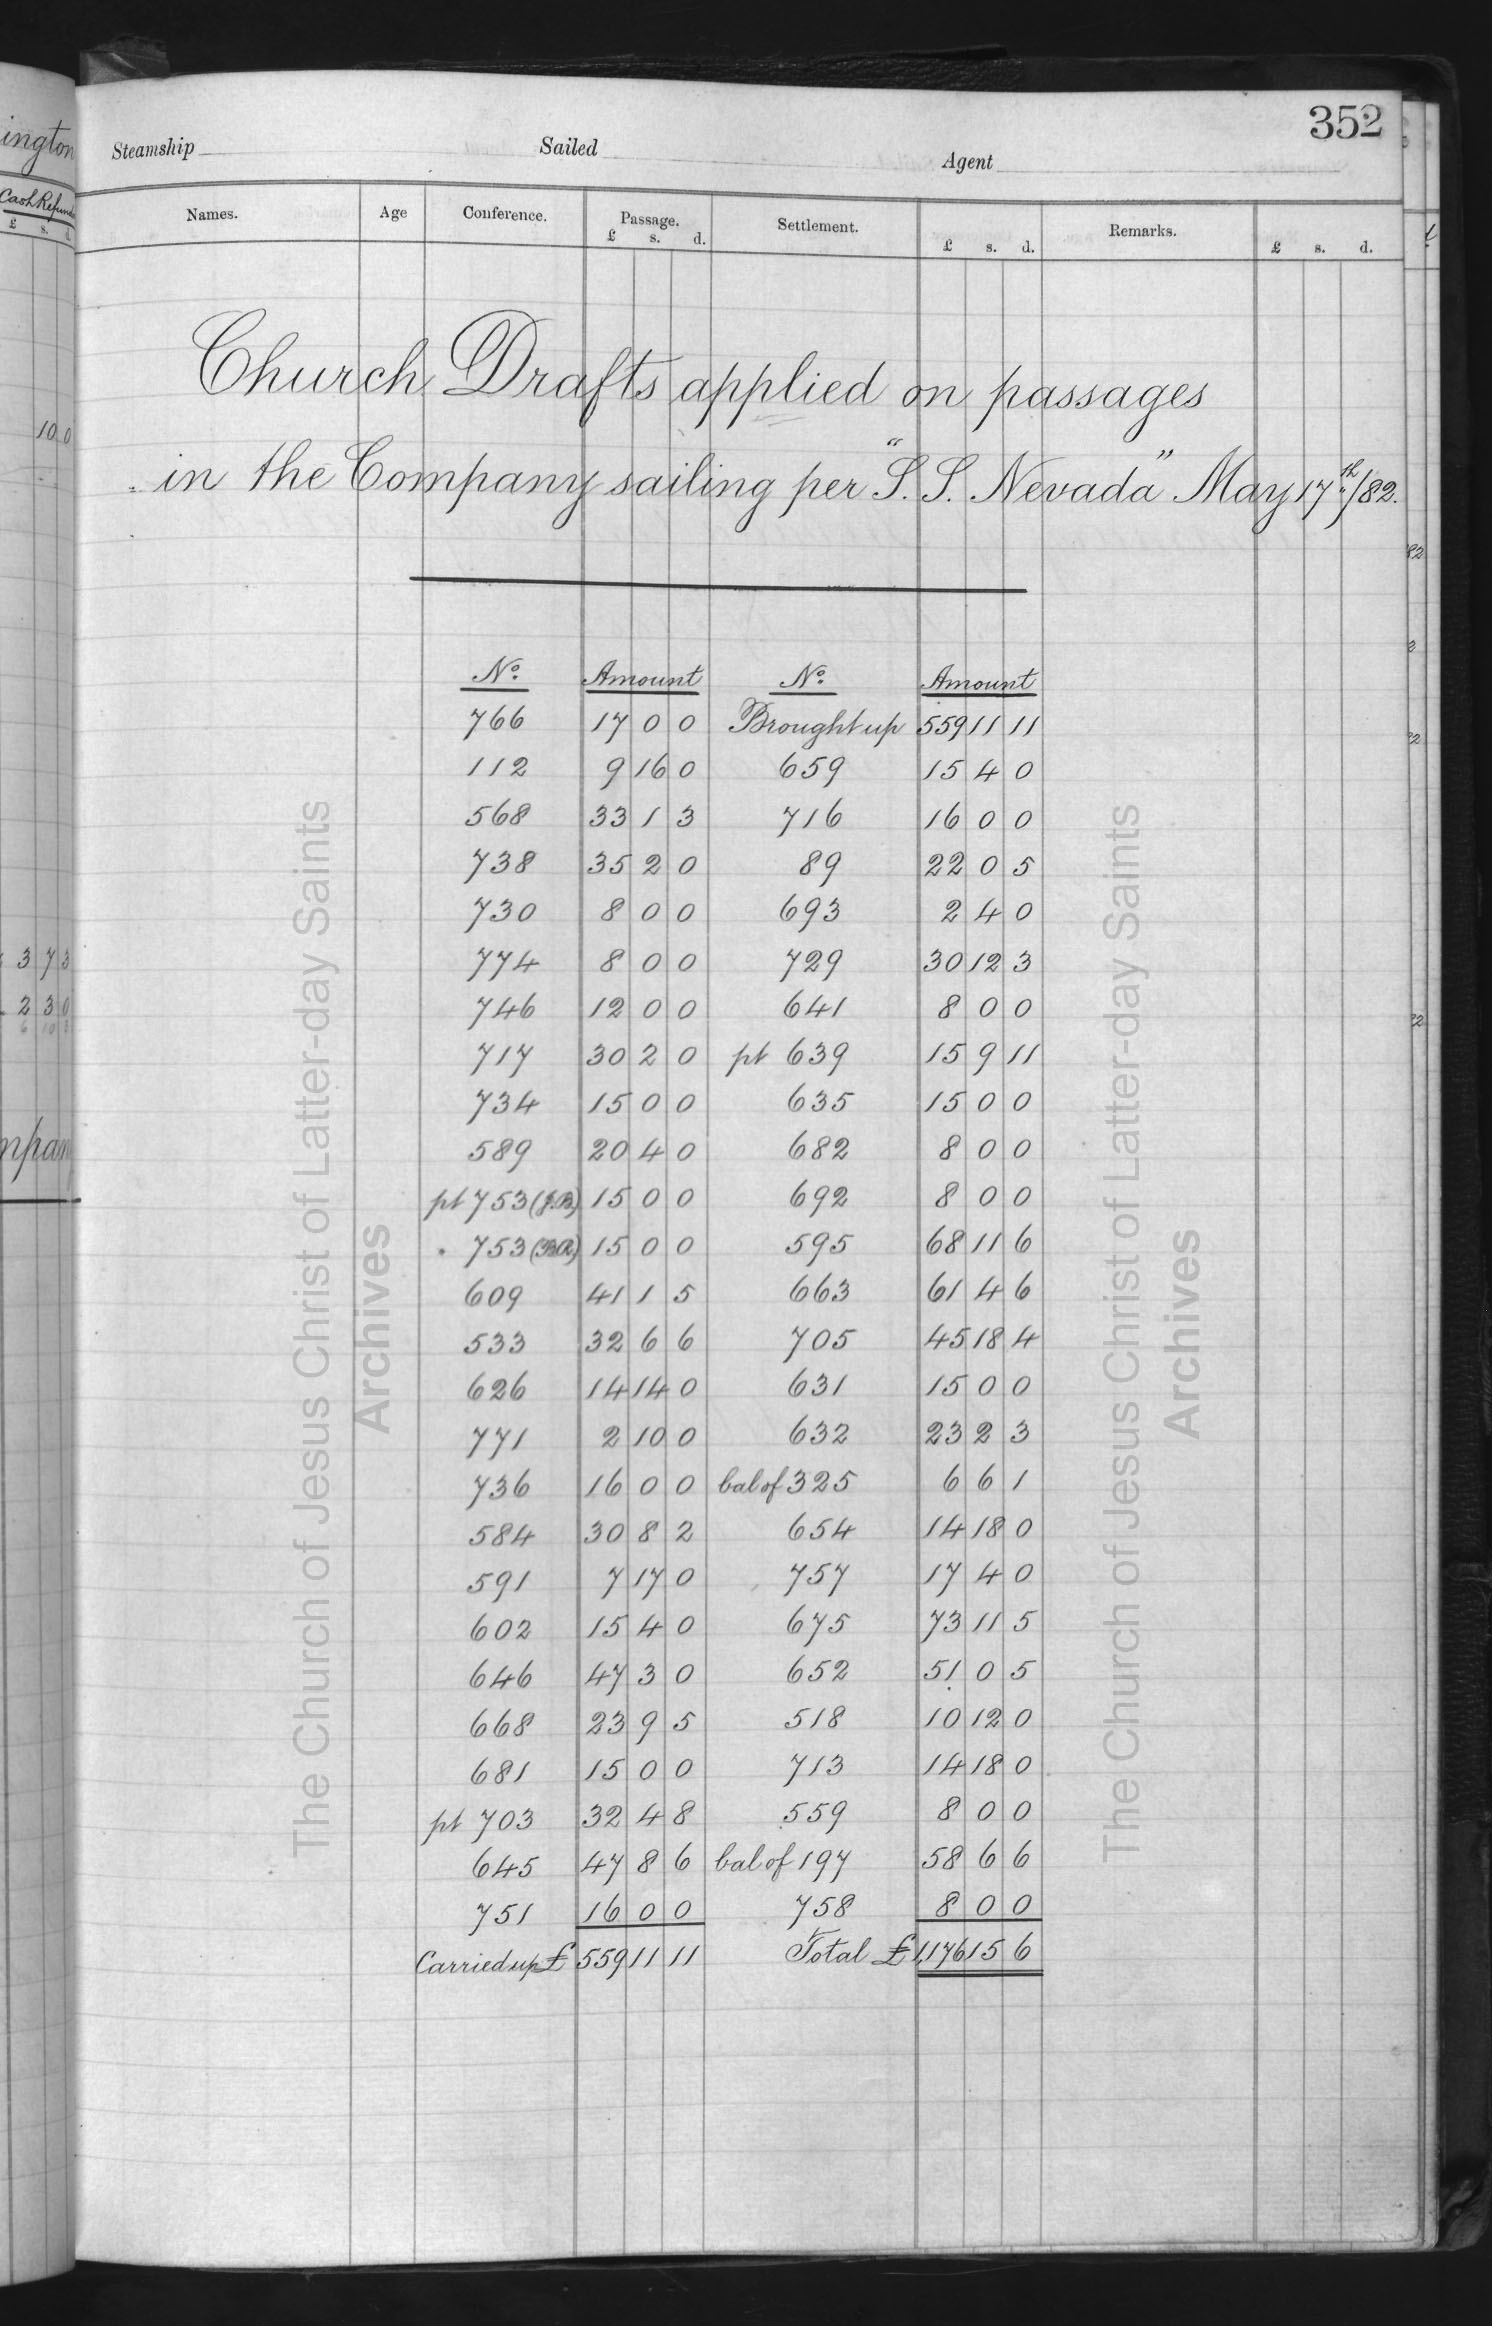 352
Steamship Sailed Agent
Names. Age Conference. Passage. Settlement. Remarks.
£ s. d. £ s. d. £ s. d.
Church Drafts applied on passages
in the Company sailing per "S. S. Nevada" May 17th/82.
No. Amount No. Amount
766 17 0 0 Brought up 559 11 11
112 9 16 0 659 15 4 0
568 33 1 3 716 16 0 0
738 35 2 0 89 22 0 5
730 8 0 0 693 2 4 0
774 8 0 0 729 30 12 3
746 12 0 0 641 8 0 0
717 30 2 0 pt 639 15 9 11
734 15 0 0 635 15 0 0
589 20 4 0 682 8 0 0
pt 753 (J.B.) 15 0 0 692 8 0 0
" 753 15 0 0 595 68 11 6
609 41 1 5 663 61 4 6
533 32 6 6 705 45 18 4
626 14 14 0 631 15 0 0
771 2 10 0 632 23 2 3
736 16 0 0 bal of 325 6 6 1
584 30 8 2 654 14 18 0
591 7 17 0 757 17 4 0
602 15 4 0 675 73 11 5
646 47 3 0 652 51 0 5
668 23 9 5 518 10 12 0
681 15 0 0 713 14 18 0
pt 703 32 4 8 559 8 0 0
645 47 8 6 bal of 197 58 6 6
751 16 0 0 758 8 0 0
Carried up £ 559 11 11 Total £ 1,176 15 6
The Church of Jesus Christ of Latter-day Saints
Archives
The Church of Jesus Christ of Latter-day Saints
Archives
ington
Cash Refund
£ s. d.
10 0
3 7 3
2 3 0
6 10 3
mpany